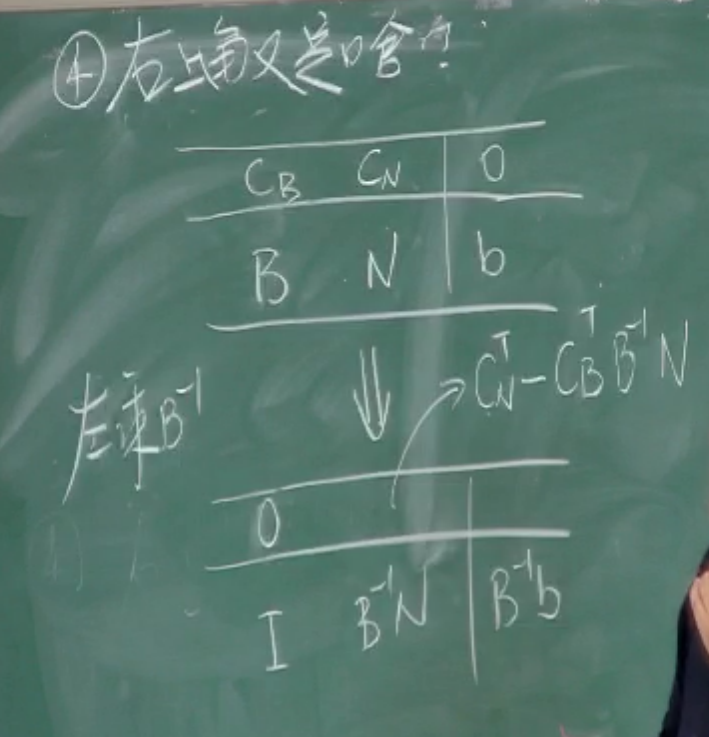 ④右上角又是啥?
C_B C_N 0
B N b
左乘B⁻¹ ⇓ C_N^T - C_B^T B⁻¹ N
0
I B⁻¹N B⁻¹b